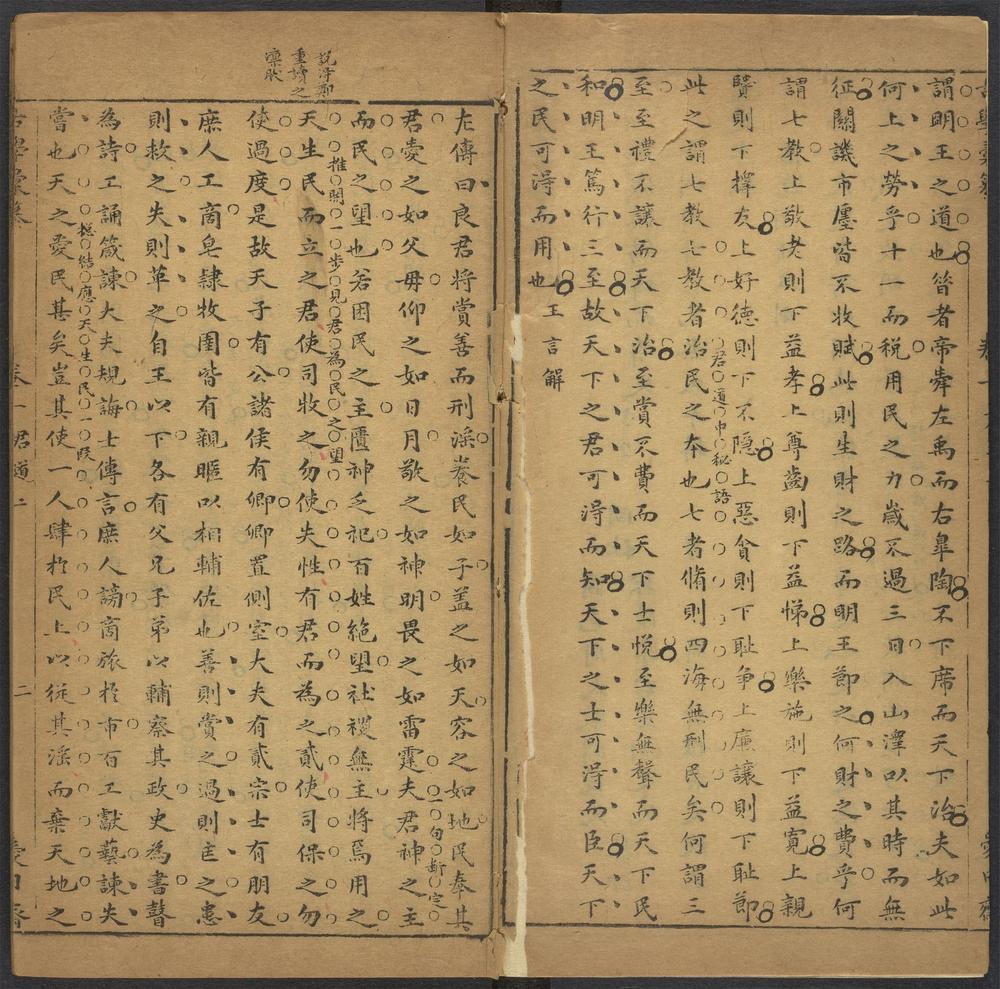 謂明王之道也昔者帝舜左禹而右臯陶不下席而天下治夫如此
何上之勞乎十一而稅用民之力歲不過三日入山澤以其時而無
征關譏市廛皆不收賦此則生財之路而明王節之何財之費乎何
謂七教上敬老則下益孝上尊齒則下益悌上樂施則下益寬上親
賢則下擇友上好德則下不隱上惡貪則下耻爭上廉讓則下耻節
君道中秘語
此之謂七教七教者治民之本也七者脩則四海無刑民矣何謂三
至至禮不讓而天下治至賞不費而天下士悅至樂無聲而天下民
和明王篤行三至故天下之君可淂而知天下之士可淂而臣天下
之民可淂而用也王言解
重讀之
左傳曰良君将賞善而刑淫養民如子盖之如天容之如地民奉其
一句斷定
君愛之如父母仰之如日月敬之如神明畏之如雷霆夫君神之主
而民之望也若困民之主匱神乏祀百姓絕望社稷無主将焉用之
推開一步見君為民之望
天生民而立之君使司牧之勿使失性有君而為之貳使司保之勿
使過度是故天子有公諸侯有卿卿置側室大夫有貳宗士有朋友
庶人工商皂隸牧圉皆有親暱以相輔佐也善則賞之過則匡之患
則救之失則革之自王以下各有父兄子弟以輔察其政史為書瞽
為詩工誦箴諫大夫規誨士傳言庶人謗商旅於市百工獻藝諫失
總結應天生民一段
嘗也天之愛民甚矣豈其使一人肆於民上以從其淫而棄天地之
卷一 君道二 二